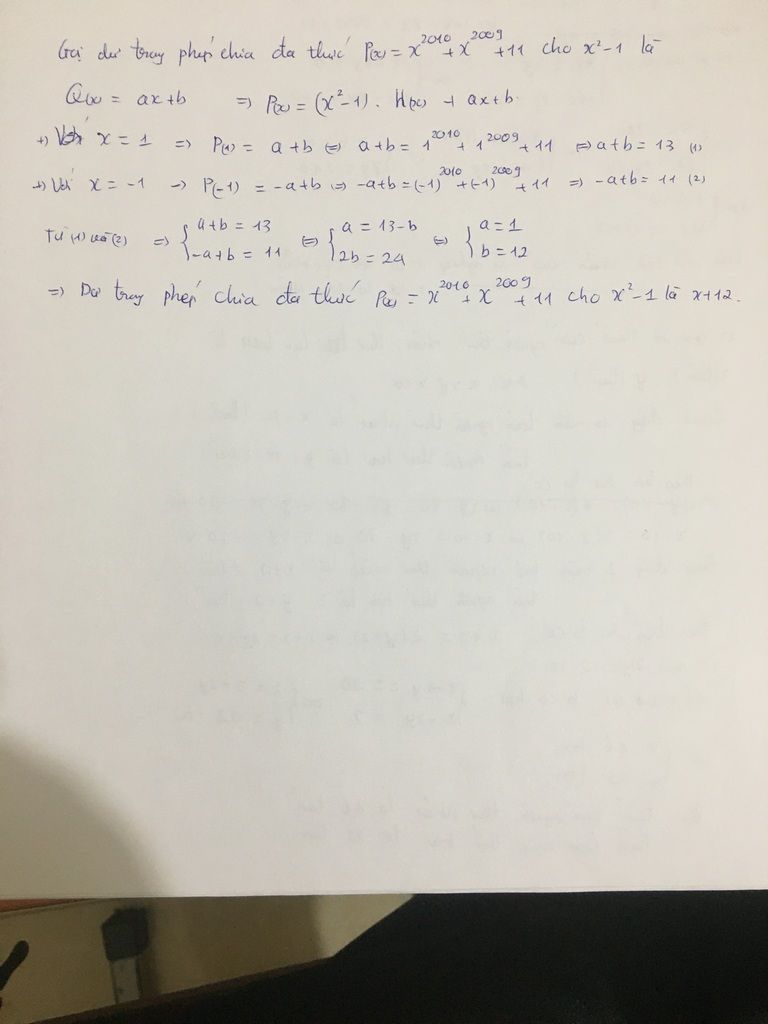 Gọi dư trong phép chia đa thức P(x) = x^2010 + x^2009 + 11 cho x² - 1 là
Q(x) = ax + b => P(x) = (x² - 1) . H(x) + ax + b.
+) Với x = 1 => P(1) = a + b <=> a + b = 1^2010 + 1^2009 + 11 <=> a + b = 13 (1)
+) Với x = -1 -> P(-1) = -a + b => -a + b = (-1)^2010 + (-1)^2009 + 11 => -a + b = 11 (2)
Từ (1) và (2) => { a + b = 13 ; -a + b = 11 <=> { a = 13 - b ; 2b = 24 <=> { a = 1 ; b = 12
=> Dư trong phép chia đa thức P(x) = x^2010 + x^2009 + 11 cho x² - 1 là x + 12.